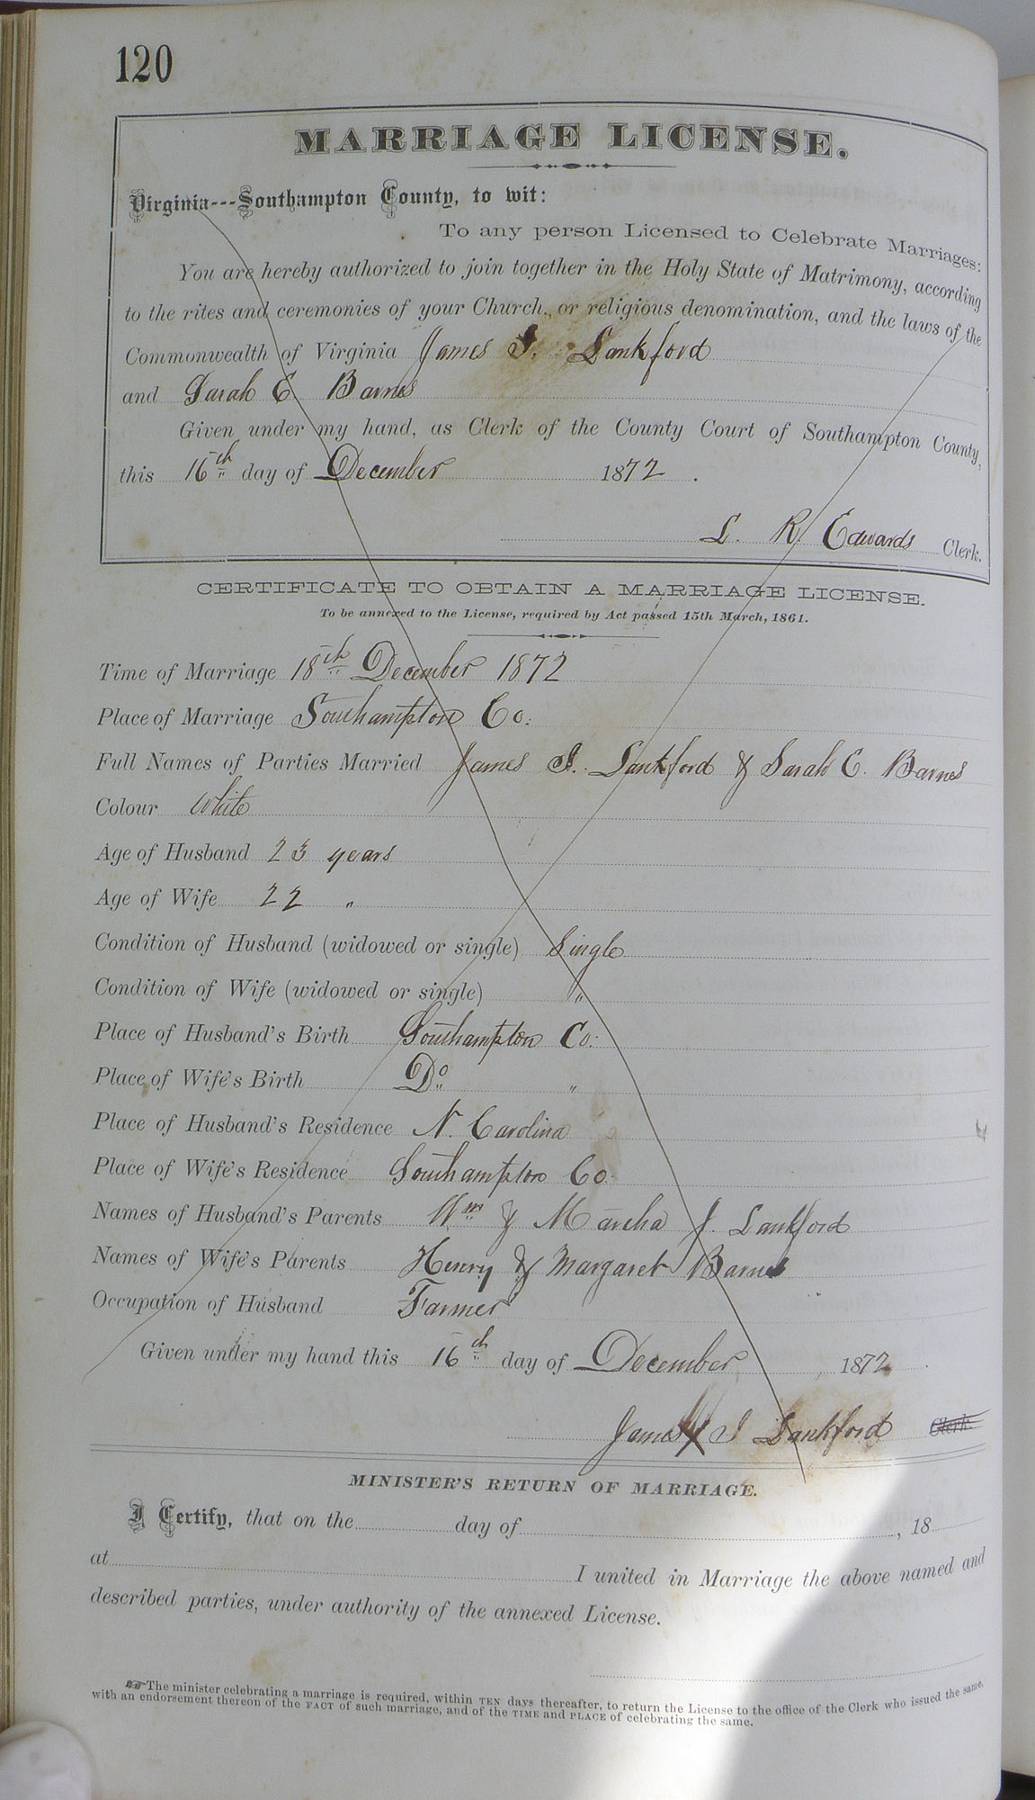 120
MARRIAGE LICENSE.
Virginia---Southampton County, to wit:
To any person Licensed to Celebrate Marriages:
You are hereby authorized to join together in the Holy State of Matrimony, according
to the rites and ceremonies of your Church, or religious denomination, and the laws of the
Commonwealth of Virginia James J. Lankford
and Sarah E Barnes
Given under my hand, as Clerk of the County Court of Southampton County,
this 16th day of December 1872.
L. R. Edwards Clerk.
CERTIFICATE TO OBTAIN A MARRIAGE LICENSE.
To be annexed to the License, required by Act passed 15th March, 1861.
Time of Marriage 18th December 1872
Place of Marriage Southampton Co:
Full Names of Parties Married James J. Lankford & Sarah E. Barnes
Colour White
Age of Husband 23 years
Age of Wife 22 "
Condition of Husband (widowed or single) Single
Condition of Wife (widowed or single) "
Place of Husband's Birth Southampton Co:
Place of Wife's Birth Do "
Place of Husband's Residence N. Carolina
Place of Wife's Residence Southampton Co:
Names of Husband's Parents Wm & Martha J. Lankford
Names of Wife's Parents Henry & Margaret Barnes
Occupation of Husband Farmer
Given under my hand this 16th day of December, 1872.
James J Lankford Clerk.
MINISTER'S RETURN OF MARRIAGE.
I Certify, that on the day of , 18
at I united in Marriage the above named and
described parties, under authority of the annexed License.
The minister celebrating a marriage is required, within TEN days thereafter, to return the License to the office of the Clerk who issued the same,
with an endorsement thereon of the FACT of such marriage, and of the TIME and PLACE of celebrating the same.